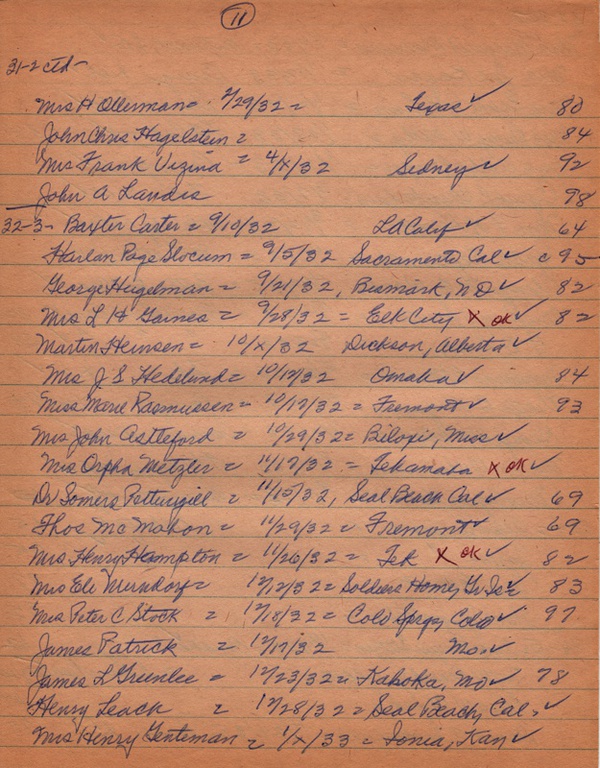 11
31-2 ctd-
Mrs H Ollerman = 4/29/32 = Texas ✓ 80
John Chris Hagelstein = 84
Mrs Frank Vizina = 4/x/32 Sidney ✓ 92
John A Landis 98
32-3- Baxter Carter = 9/10/32 LA Calif ✓ 64
Harlan Page Slocum = 9/5/32 Sacramento Cal ✓ c 95
George Heigelman = 9/21/32, Bismark, ND ✓ 82
Mrs L H Gaines = 9/28/32 = Elk City X ok ✓ 82
Martin Heinsen = 10/x/32 Dickson, Alberta ✓
Mrs J S Hedelund = 10/19/32 Omaha ✓ 84
Miss Marie Rasmussen = 10/19/32 = Fremont ✓ 93
Mrs John Astleford = 10/29/32 = Biloxi, Miss ✓
Mrs Orpha Metzler = 11/17/32 = Tekamaha X ok ✓
Dr Somers Pettungill = 11/15/32, Seal Beach Cal ✓ 69
Thos McMahon = 11/29/32 = Fremont ✓ 69
Mrs Henry Hampton = 11/26/32 = Tek X ok ✓ 82
Mrs Eli = 12/2/32 = Soldiers Home, Gr Isle ✓ 83
Mrs Peter C Stork = 12/18/32 = Colo Sprgs, Colo ✓ 97
James Patrick = 12/17/32 Mo. ✓
James L Greenlee = 12/23/32 = Kahoka, Mo ✓ 78
Henry Leach = 12/28/32 = Seal Beach, Cal. ✓
Mrs Henry Genteman = 1/x/33 = Ionia, Kan ✓